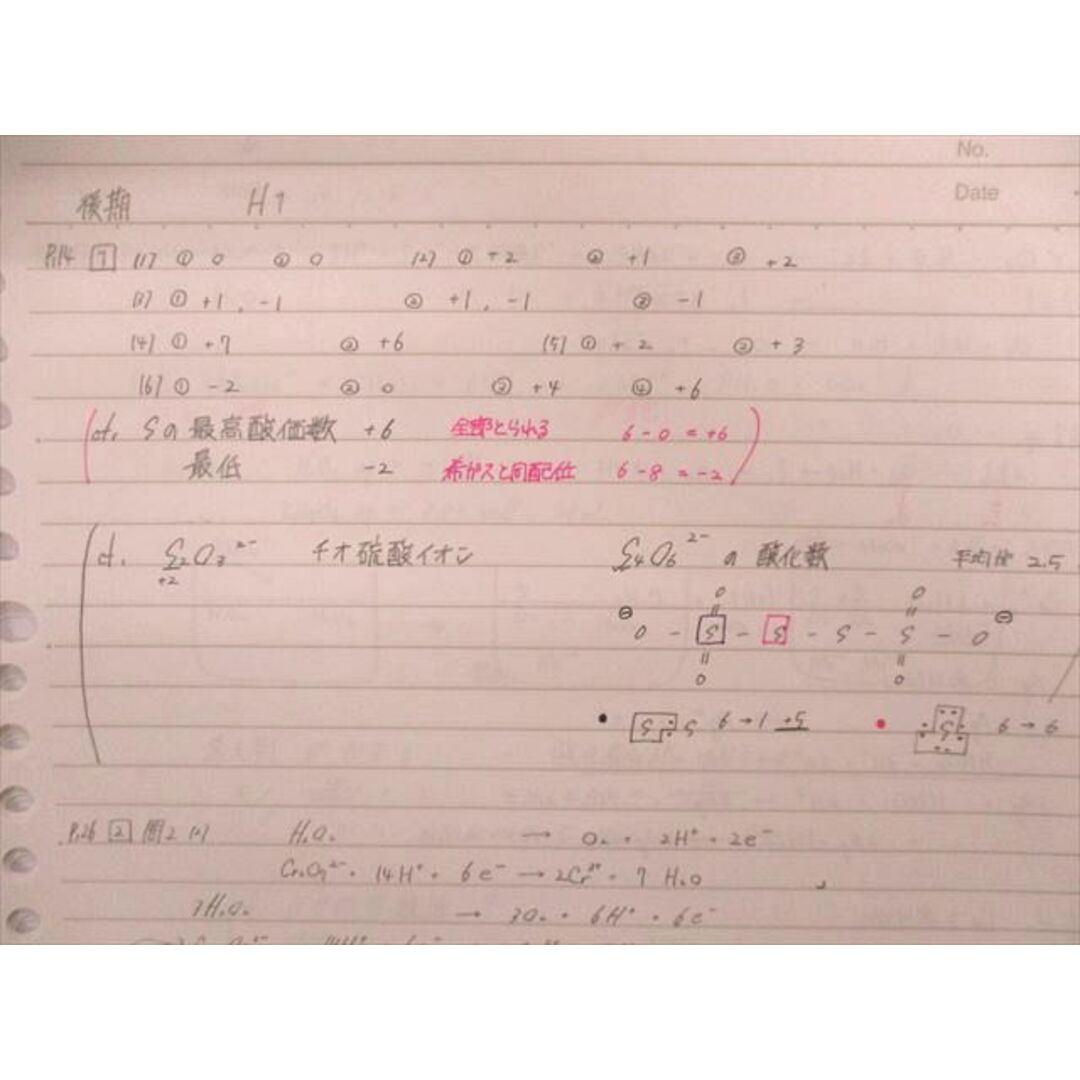 No.
Date
後期 H1
P.14 1 (1) ① 0 ② 0 (2) ① +2 ② +1 ③ +2
(3) ① +1, -1 ② +1, -1 ③ -1
(4) ① +7 ② +6 (5) ① +2 ② +3
(6) ① -2 ② 0 ③ +4 ④ +6
cf. Sの最高酸価数 +6 全部とられる 6-0=+6
最低 -2 希ガスと同配位 6-8=-2
cf. S₂O₃²⁻ チオ硫酸イオン S₄O₆²⁻ の 酸化数 平均値 2.5
+2
O O
⊖ O - S - S - S - S - O ⊖
O O
• S S 6→1 +5 • S 6→6
P.26 2 問2 H₂O₂ → O₂ + 2H⁺ + 2e⁻
Cr₂O₇²⁻ + 14H⁺ + 6e⁻ → 2Cr³⁺ + 7H₂O
3H₂O₂ → 3O₂ + 6H⁺ + 6e⁻